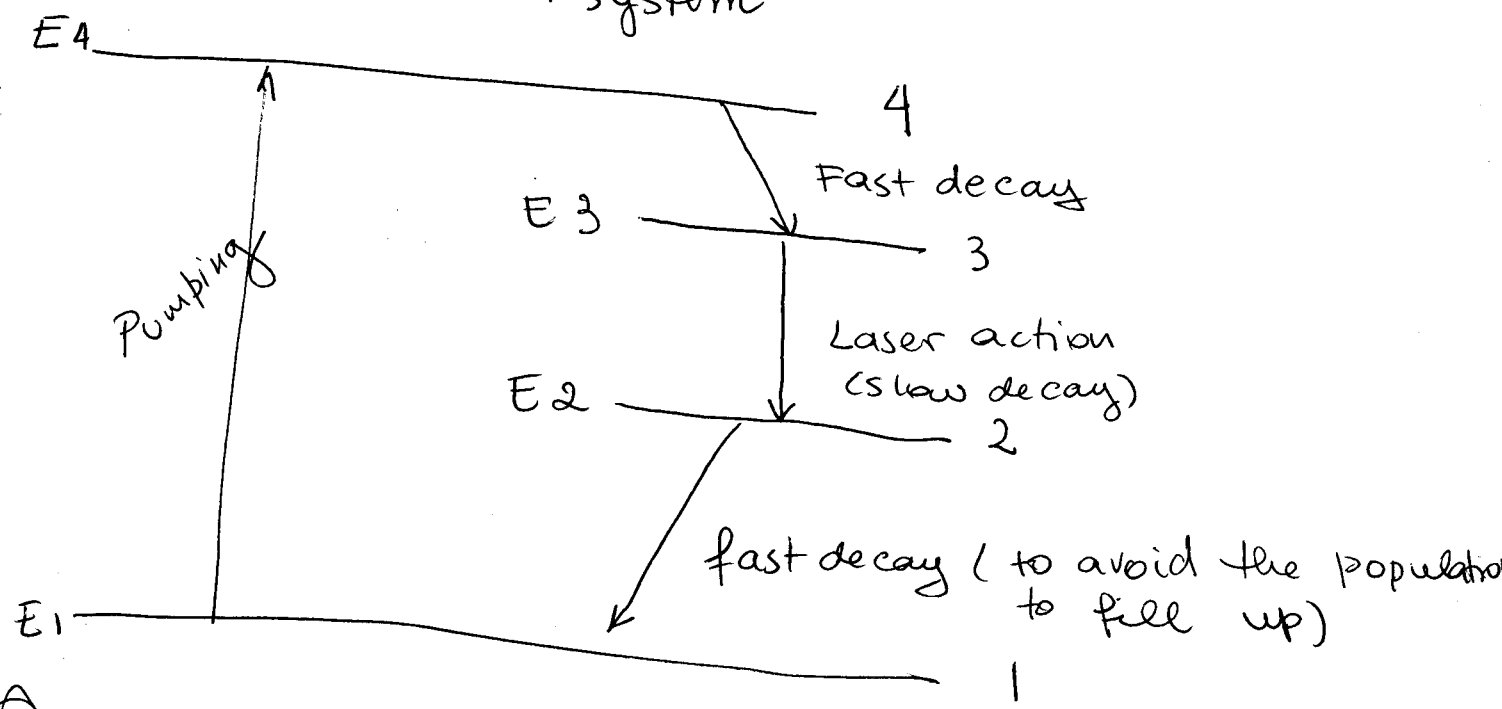 system
E4
4
Fast decay
E3
3
Pumping
Laser action
(slow decay)
E2
2
fast decay (to avoid the populatio
to fill up)
E1
1